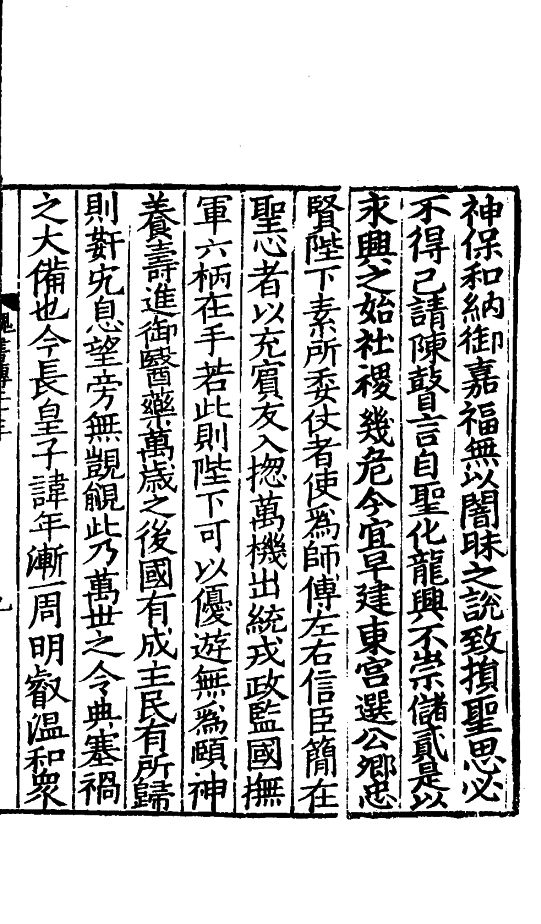 神保和納御嘉福無以闇昧之說致損聖思必
不得已請陳瞽言自聖化龍興不崇儲貳是以
永興之始社稷幾危今宜早建東宮選公卿忠
賢陛下素所委仗者使爲師傅左右信臣簡在
聖心者以充賓友入揔萬機出統戎政監國撫
軍六柄在手若此則陛下可以優遊無爲頤神
養壽進御醫藥萬歲之後國有成主民有所歸
則姧宄息望旁無覬覦此乃萬世之令典塞禍
之大備也今長皇子諱年漸一周明叡温和衆
魏書傳二十三
九